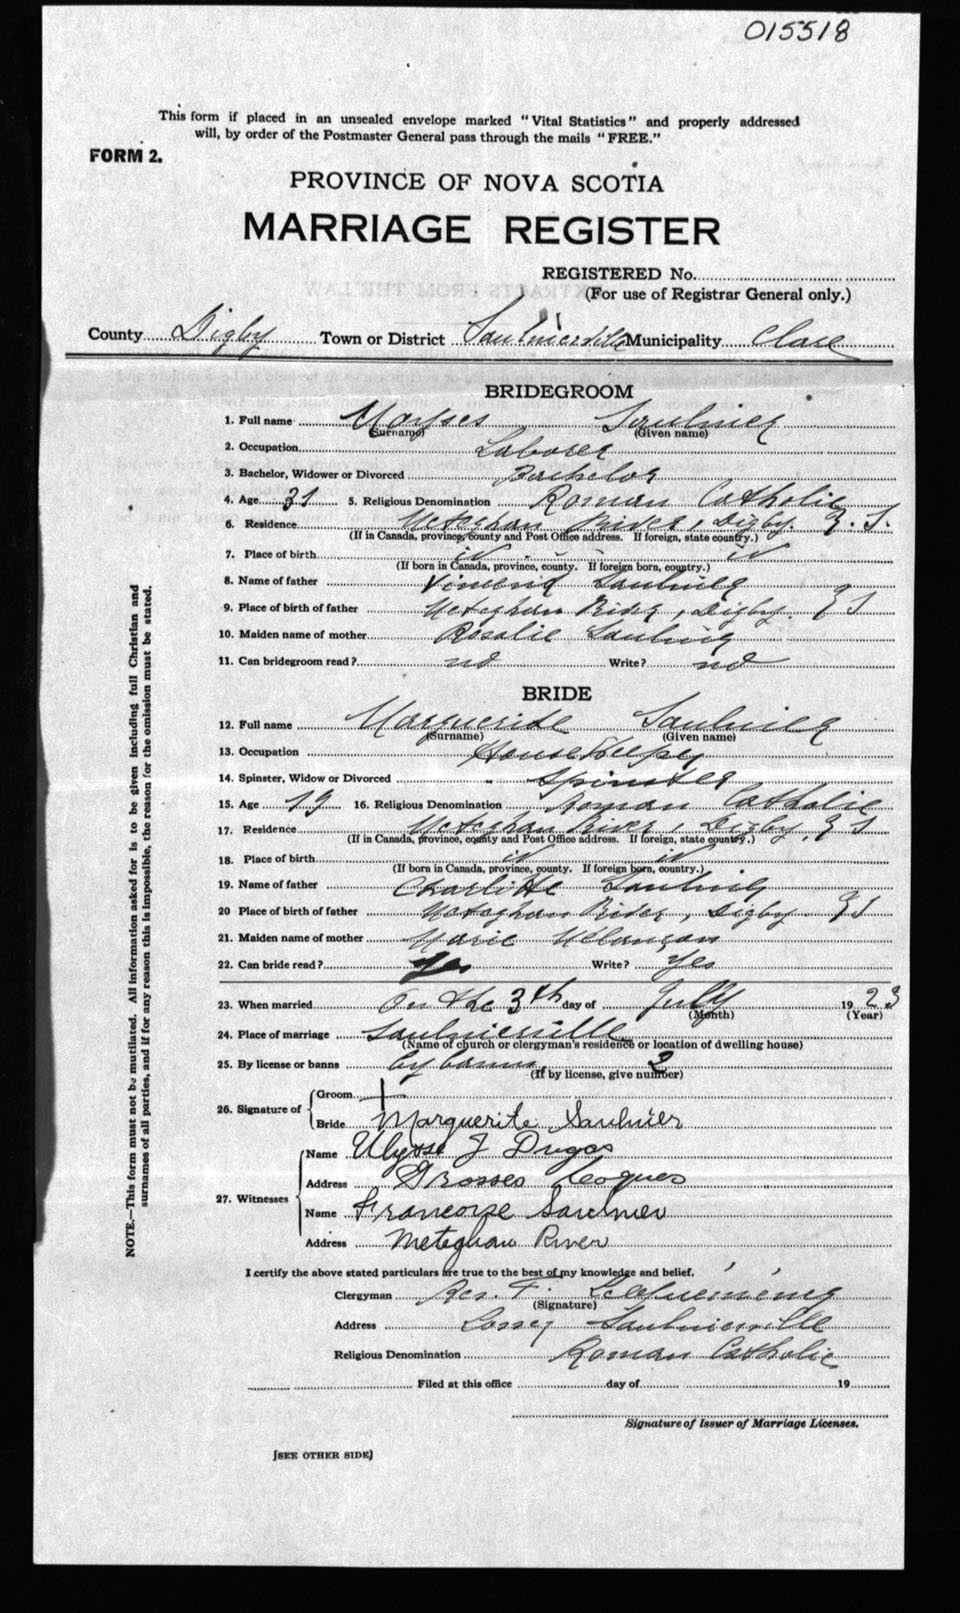 015518
This form if placed in an unsealed envelope marked "Vital Statistics" and properly addressed
will, by order of the Postmaster General pass through the mails "FREE."
FORM 2.
PROVINCE OF NOVA SCOTIA
MARRIAGE REGISTER
REGISTERED No.
(For use of Registrar General only.)
County Digby Town or District Saulnierville Municipality Clare
BRIDEGROOM
1. Full name Moyses Saulnier
(Surname) (Given name)
2. Occupation Laborer
3. Bachelor, Widower or Divorced Bachelor
4. Age 31 5. Religious Denomination Roman Catholic
6. Residence Meteghan River, Digby. N. S.
(If in Canada, province, county and Post Office address. If foreign, state country.)
7. Place of birth
(If born in Canada, province, county. If foreign born, country.)
8. Name of father Vincent Saulnier
9. Place of birth of father Meteghan River, Digby. N S
10. Maiden name of mother Rosalie Saulnier
11. Can bridegroom read? no Write? no
BRIDE
12. Full name Marguerite Saulnier
(Surname) (Given name)
13. Occupation House Keeper
14. Spinster, Widow or Divorced Spinster
15. Age 19 16. Religious Denomination Roman Catholic
17. Residence Meteghan River, Digby, N S
(If in Canada, province, county and Post Office address. If foreign, state country.)
18. Place of birth
(If born in Canada, province, county. If foreign born, country.)
19. Name of father Charlitte Saulnier
20 Place of birth of father Meteghan River, Digby. N S
21. Maiden name of mother Marie Melançon
22. Can bride read? Yes Write? Yes
23. When married On the 3th day of July 1923
(Month) (Year)
24. Place of marriage Saulnierville
(Name of church or clergyman's residence or location of dwelling house)
25. By license or banns by banns 2
(If by license, give number)
26. Signature of
Groom +
Bride Marguerite Saulnier
27. Witnesses
Name Ulysse J Dugas
Address Grosses Coques
Name Francoise Saulnier
Address Meteghan River
I certify the above stated particulars are true to the best of my knowledge and belief.
Clergyman Rev. F.
(Signature)
Address Saulnierville
Religious Denomination Roman Catholic
Filed at this office day of 19
Signature of Issuer of Marriage Licenses.
[SEE OTHER SIDE]
NOTE.—This form must not be mutilated. All information asked for is to be given including full Christian and
surnames of all parties, and if for any reason this is impossible, the reason for the omission must be stated.